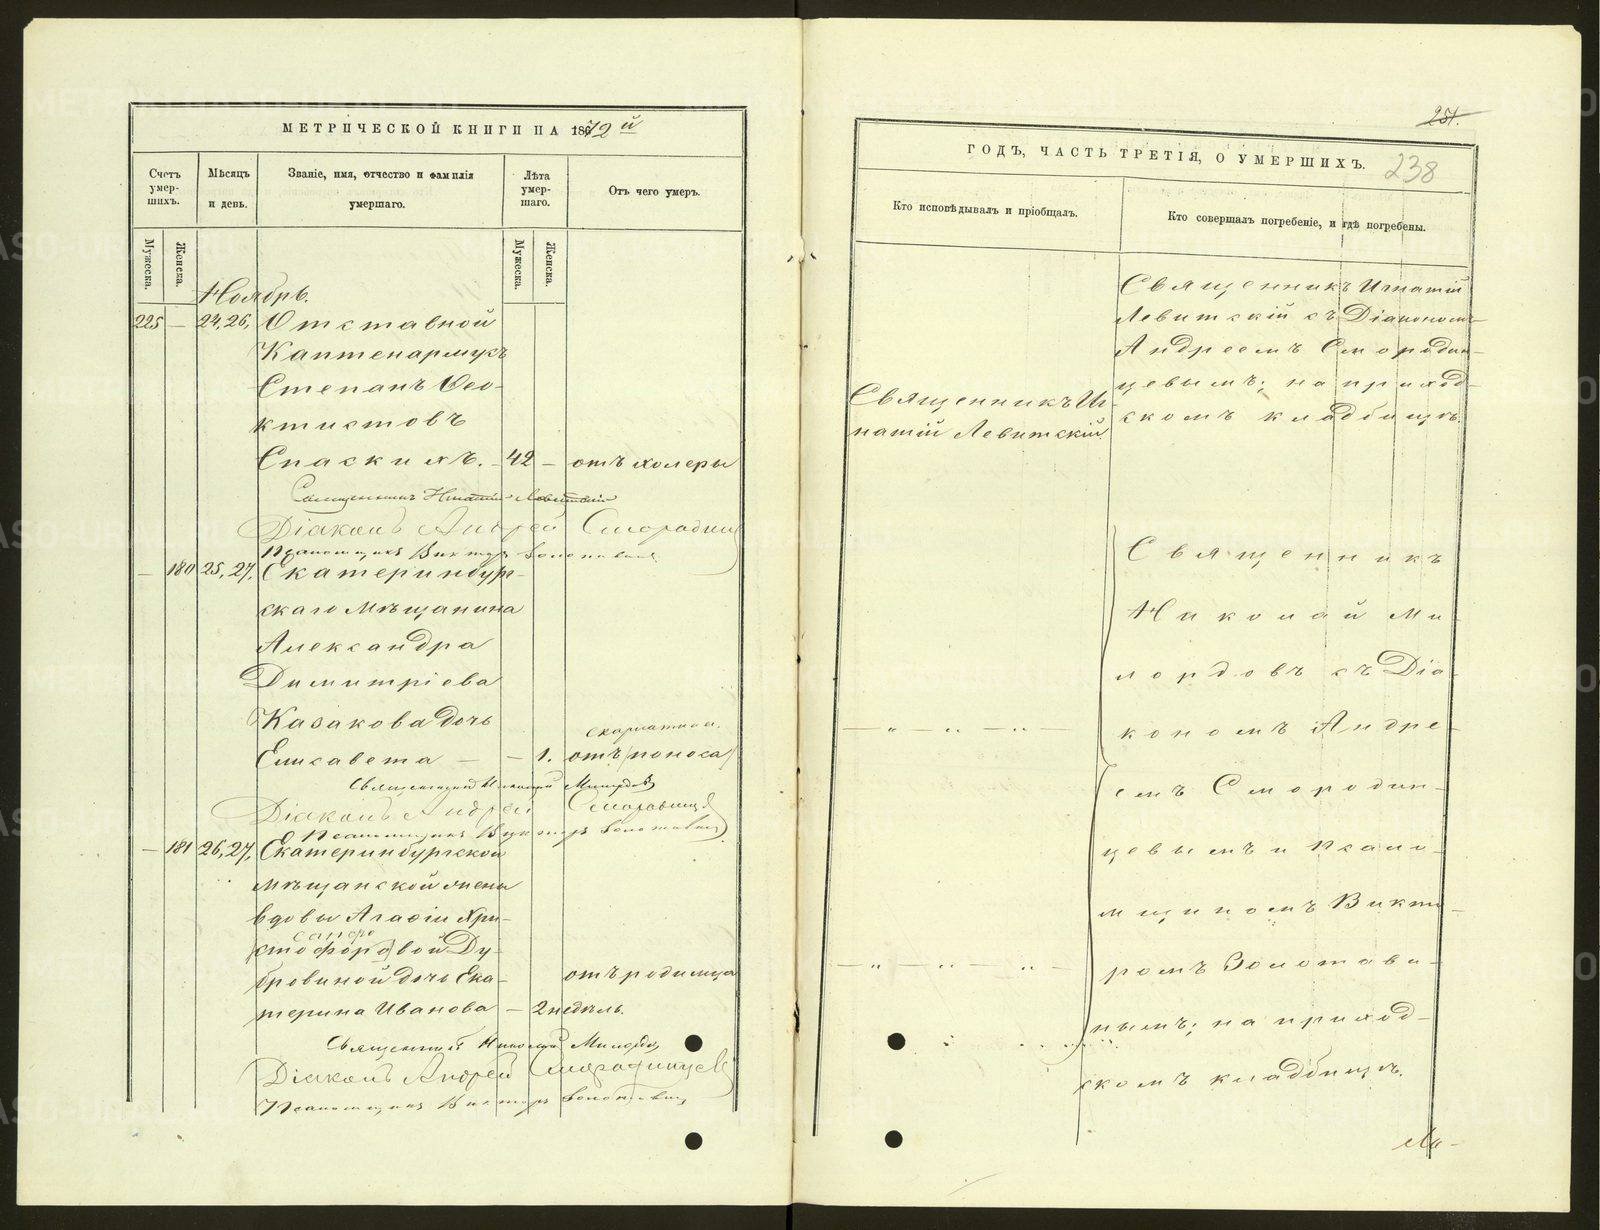 МЕТРИЧЕСКОЙ КНИГИ НА 1872 й
Счетъ умер-
шихъ.
Мѣсяцъ
и день.
Званіе, имя, отчество и фамилія
умершаго.
Лѣта
умер-
шаго.
Отъ чего умеръ.
Мужеска.
Женска.
Мужеска.
Женска.
Ноябрь.
225 — 24, 26, Отставной
Каптенармусъ
Степанъ Ѳео-
ктистовъ
Спаскихъ. — 42 — отъ холеры
Священникъ Игнатій Левитскій
Діаконъ Андрей Смородин
Псаломщикъ Викторъ
— 180 25, 27, Екатеринбург-
скаго мѣщанина
Александра
Димитріева
Казакова дочь
скарлатина.
Елисавета — — 1. отъ (поноса)
Священникъ Николай Милордовъ
Діаконъ Андрей Смородинцевъ
Псаломщикъ Викторъ
— 181 26, 27, Екатеринбургской
мѣщанской жены
вдовы Агафіи Хри-
стофоровой Ду-
бровиной дочь Ека- отъ родимца
терина Иванова — 2 недѣль.
Священникъ Николай Милордовъ
Діаконъ Андрей Смородинцевъ
Псаломщикъ Викторъ
251.
ГОДЪ, ЧАСТЬ ТРЕТІЯ, О УМЕРШИХЪ. 238
Кто исповѣдывалъ и пріобщалъ.
Кто совершалъ погребеніе, и гдѣ погребены.
Священникъ Иг-
натій Левитскій.
Священникъ Игнатій
Левитскій съ Діакономъ
Андреемъ Смородин-
цевымъ; на приход-
скомъ кладбищѣ.
Священникъ
Николай Ми-
лордовъ съ Діа-
— „ — „ — „ — кономъ Андре-
емъ Смородин-
цевымъ и Псало-
мщикомъ Викто-
— „ — „ — „ — ромъ Золотави-
нымъ; на приход-
скомъ кладбищѣ.